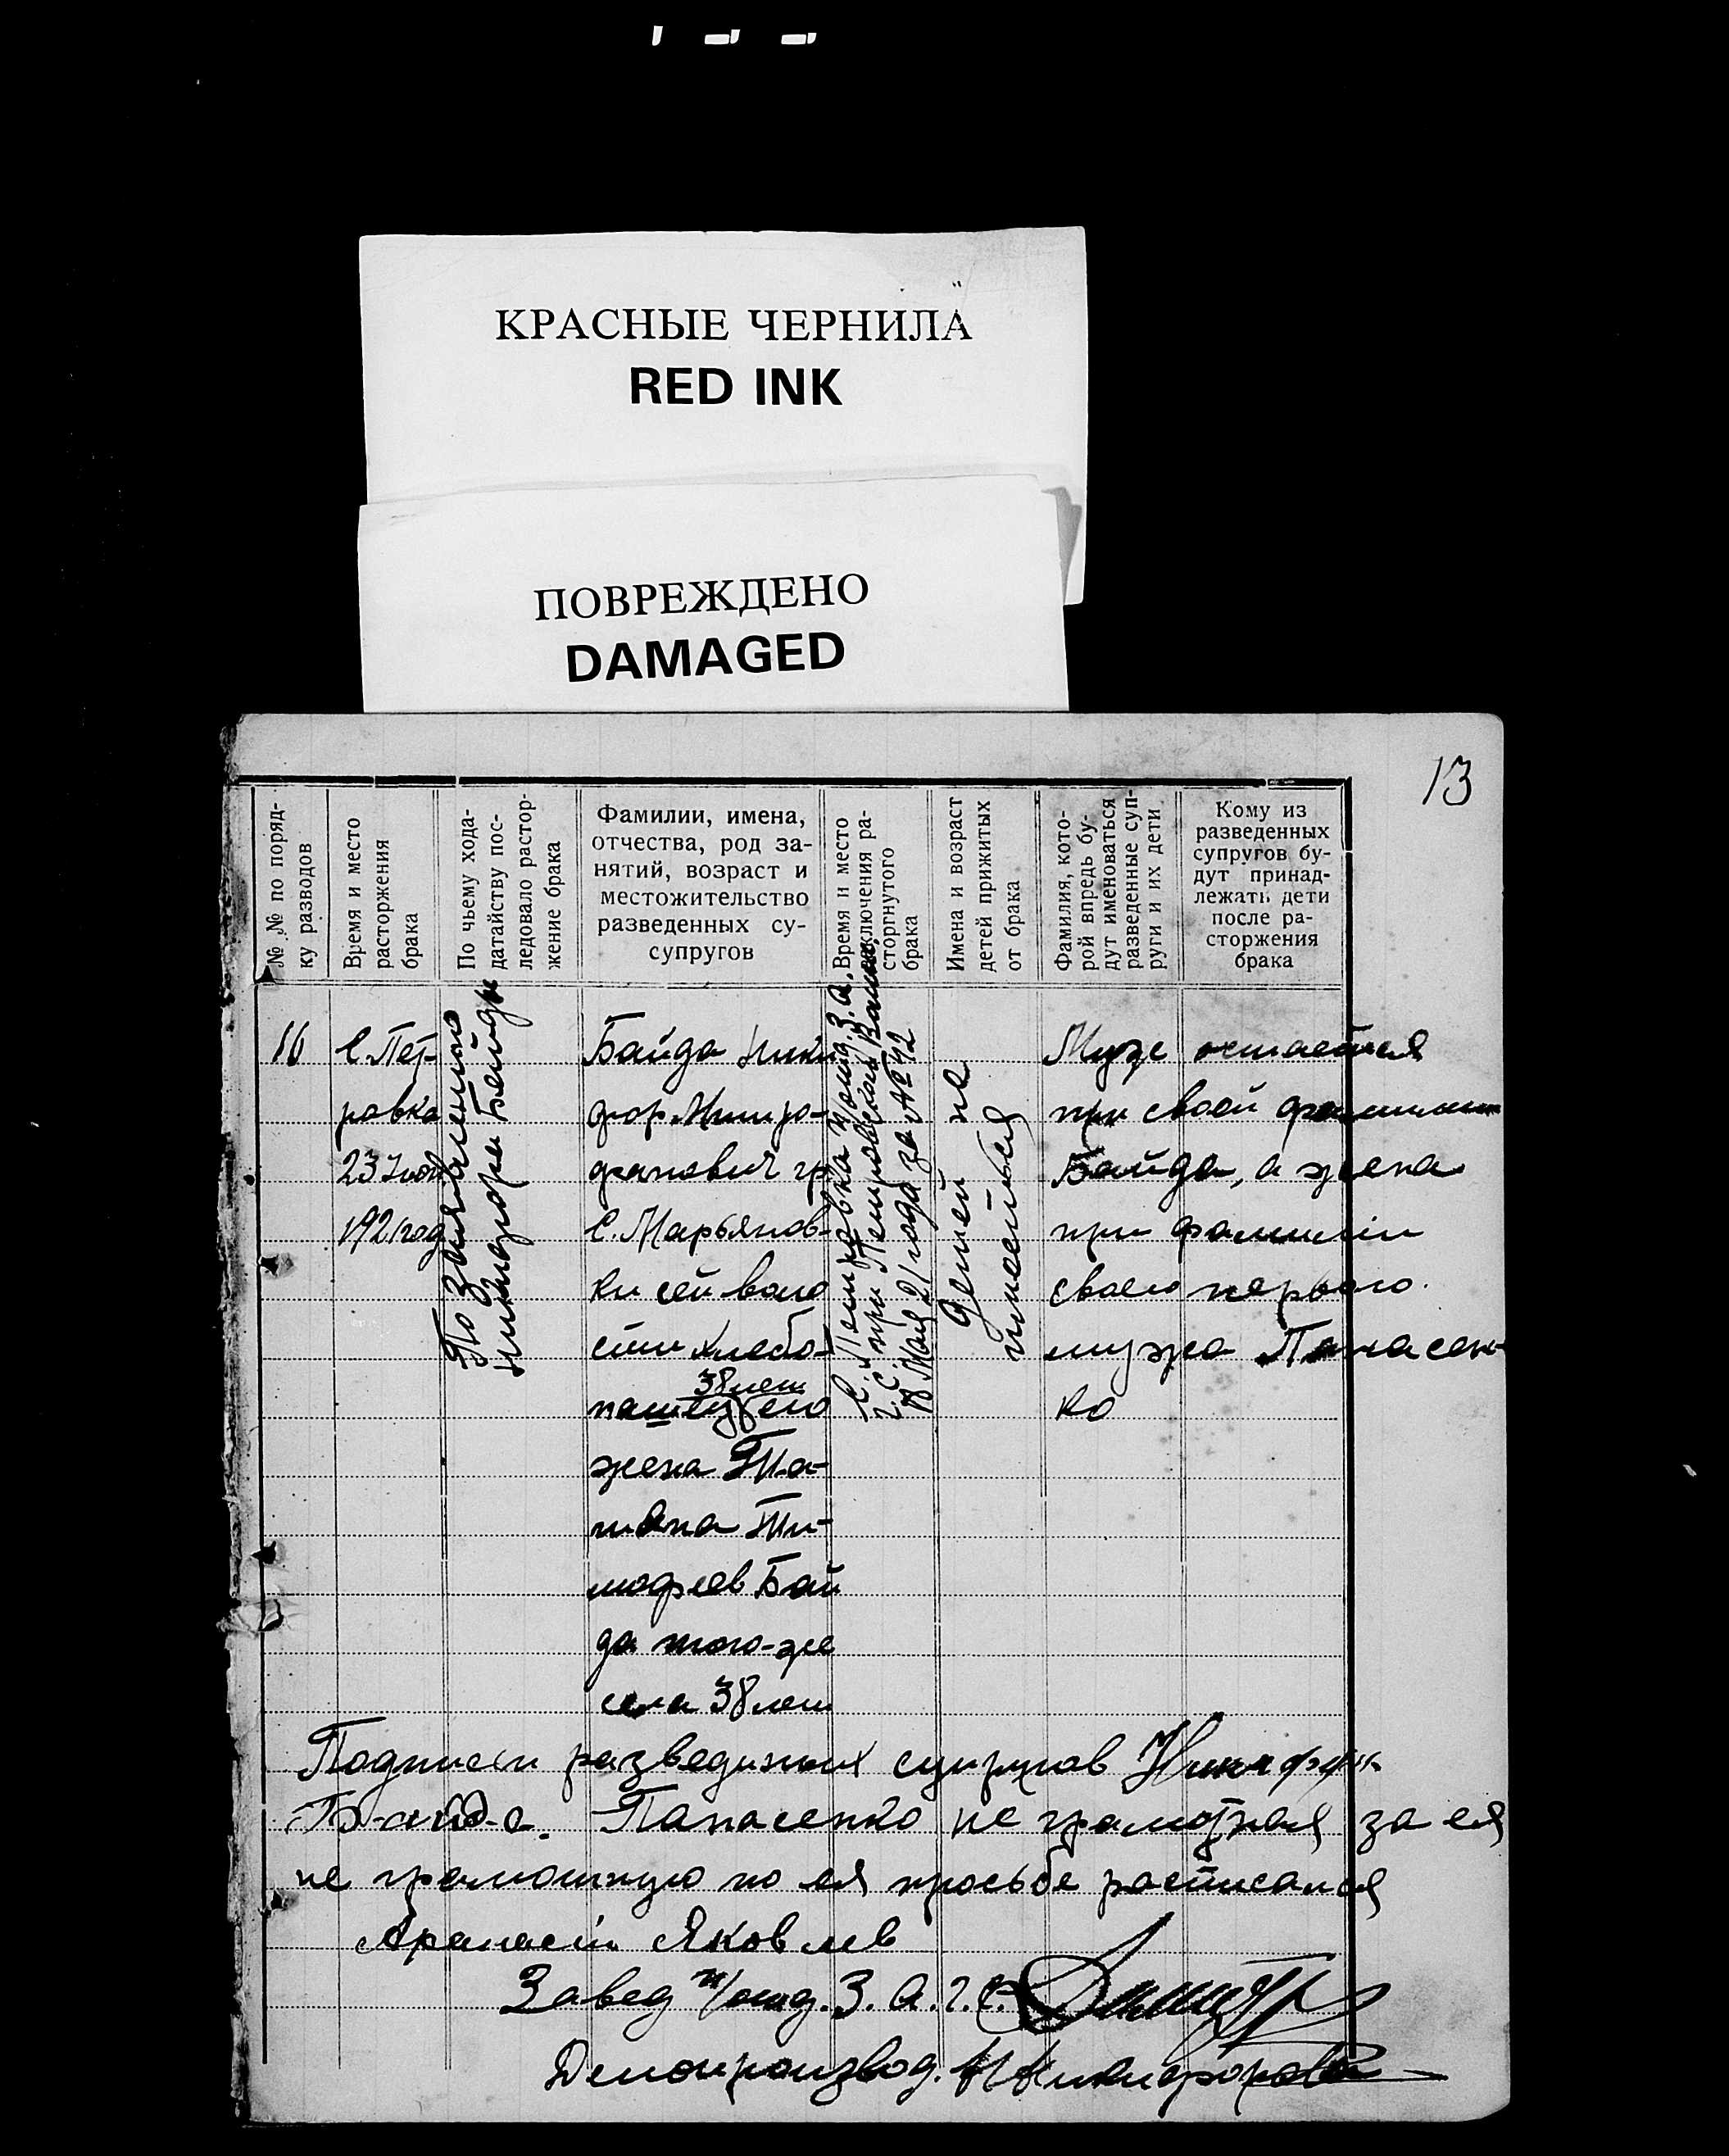 КРАСНЫЕ ЧЕРНИЛА
RED INK
ПОВРЕЖДЕНО
DAMAGED
13
№ № по поряд-
ку разводов
Время и место
расторжения
брака
По чьему хода-
датайству пос-
ледовало растор-
жение брака
Фамилии, имена,
отчества, род за-
нятий, возраст и
местожительство
разведенных су-
супругов
Время и место
заключения ра-
сторгнутого
брака
Имена и возраст
детей прижитых
от брака
Фамилия, кото-
рой впредь бу-
дут именоваться
разведенные суп-
руги и их дети
Кому из
разведенных
супругов бу-
дут принад-
лежать дети
после ра-
сторжения
брака
16
С. Пет-
ровка
23 Июня
1921 год
По заявлению
Никифора Байды
Байда Ники
фор Митро-
фанович гр
С. Марьянов-
ки сей воло
сти хлебо-
38 лет
пашец его
жена Та-
тиана Ти-
мофеев Бай
да того-же
села 38 лет
С. Петровка п/отд. З. А.
Г. С. при Петровском
Мая 21 года за № 42
Детей не
имеется
Муж остается
при своей фамилии
Байда, а жена
при фамилии
своего первого
мужа Панасен-
ко
Подписи разведенных супругов Никифор
Байда. Панасенко не грамотная за ея
не грамотную по ея просьбе расписался
Афанасий Яковлев
Завед п/отд. З. А. Г. С.
Делопроизвод. Н Никифоров